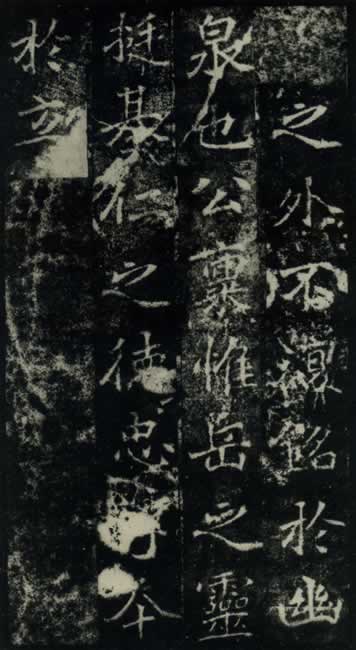 之外不銘於幽
泉也公稟惟岳之靈
挺基仁之德忠夲
於